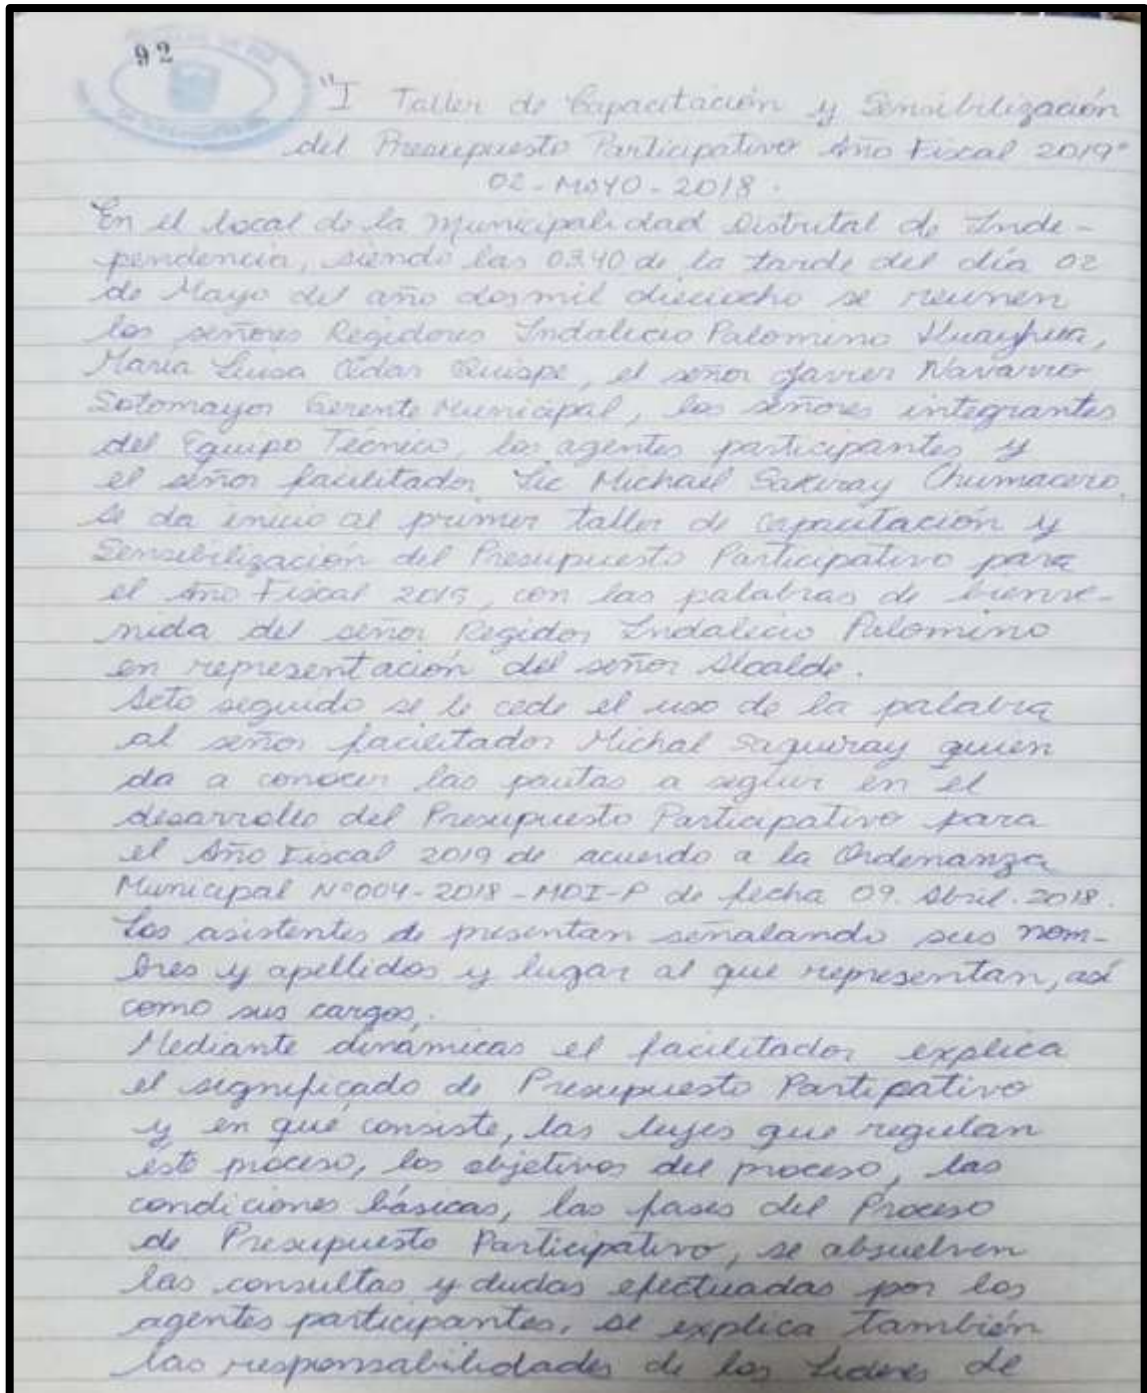 92
"I Taller de Capacitación y Sensibilización
del Presupuesto Participativo Año Fiscal 2019"
02-MAYO-2018.
En el local de la Municipalidad Distrital de Inde-
pendencia, siendo las 03.40 de la tarde del día 02
de Mayo del año dosmil dieciocho se reunen
los señores Regidores Indalicio Palomino Huayhua,
Maria Luisa Quispe, el señor Javier Navarro
Sotomayor Gerente Municipal, los señores integrantes
del Equipo Técnico, los agentes participantes y
el señor facilitador Lic Michael Sakiray Chumacero,
se da inicio al primer taller de capacitación y
Sensibilización del Presupuesto Participativo para
el Año Fiscal 2019, con las palabras de bienve-
nida del señor Regidor Indalecio Palomino
en representación del señor Alcalde.
Acto seguido se le cede el uso de la palabra
al señor facilitador Michal Saquiray quien
da a conocer las pautas a seguir en el
desarrollo del Presupuesto Participativo para
el Año Fiscal 2019 de acuerdo a la Ordenanza
Municipal Nº004-2018-MDI-P de fecha 09. Abril. 2018.
Los asistentes de presentan señalando sus nom-
bres y apellidos y lugar al que representan, así
como sus cargos.
Mediante dinámicas el facilitador explica
el significado de Presupuesto Partipativo
y en qué consiste, las leyes que regulan
este proceso, los objetivos del proceso, las
condiciones básicas, las fases del Proceso
de Presupuesto Participativo, se absuelven
las consultas y dudas efectuadas por los
agentes participantes, se explica también
las responsabilidades de los Lideres de